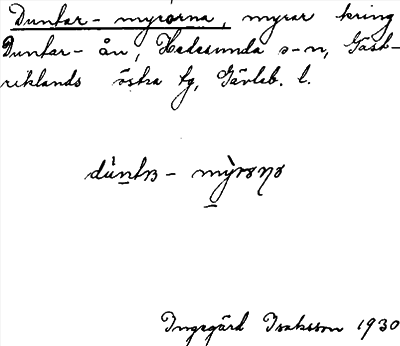 Duntar- myrorna, myrar kring
Duntar- ån, Hedesunda s-n, Gäst-
riklands östra tg, Gävleb. l.
dùntʀ - mỳrøɳø
Ingegärd Isaksson 1930